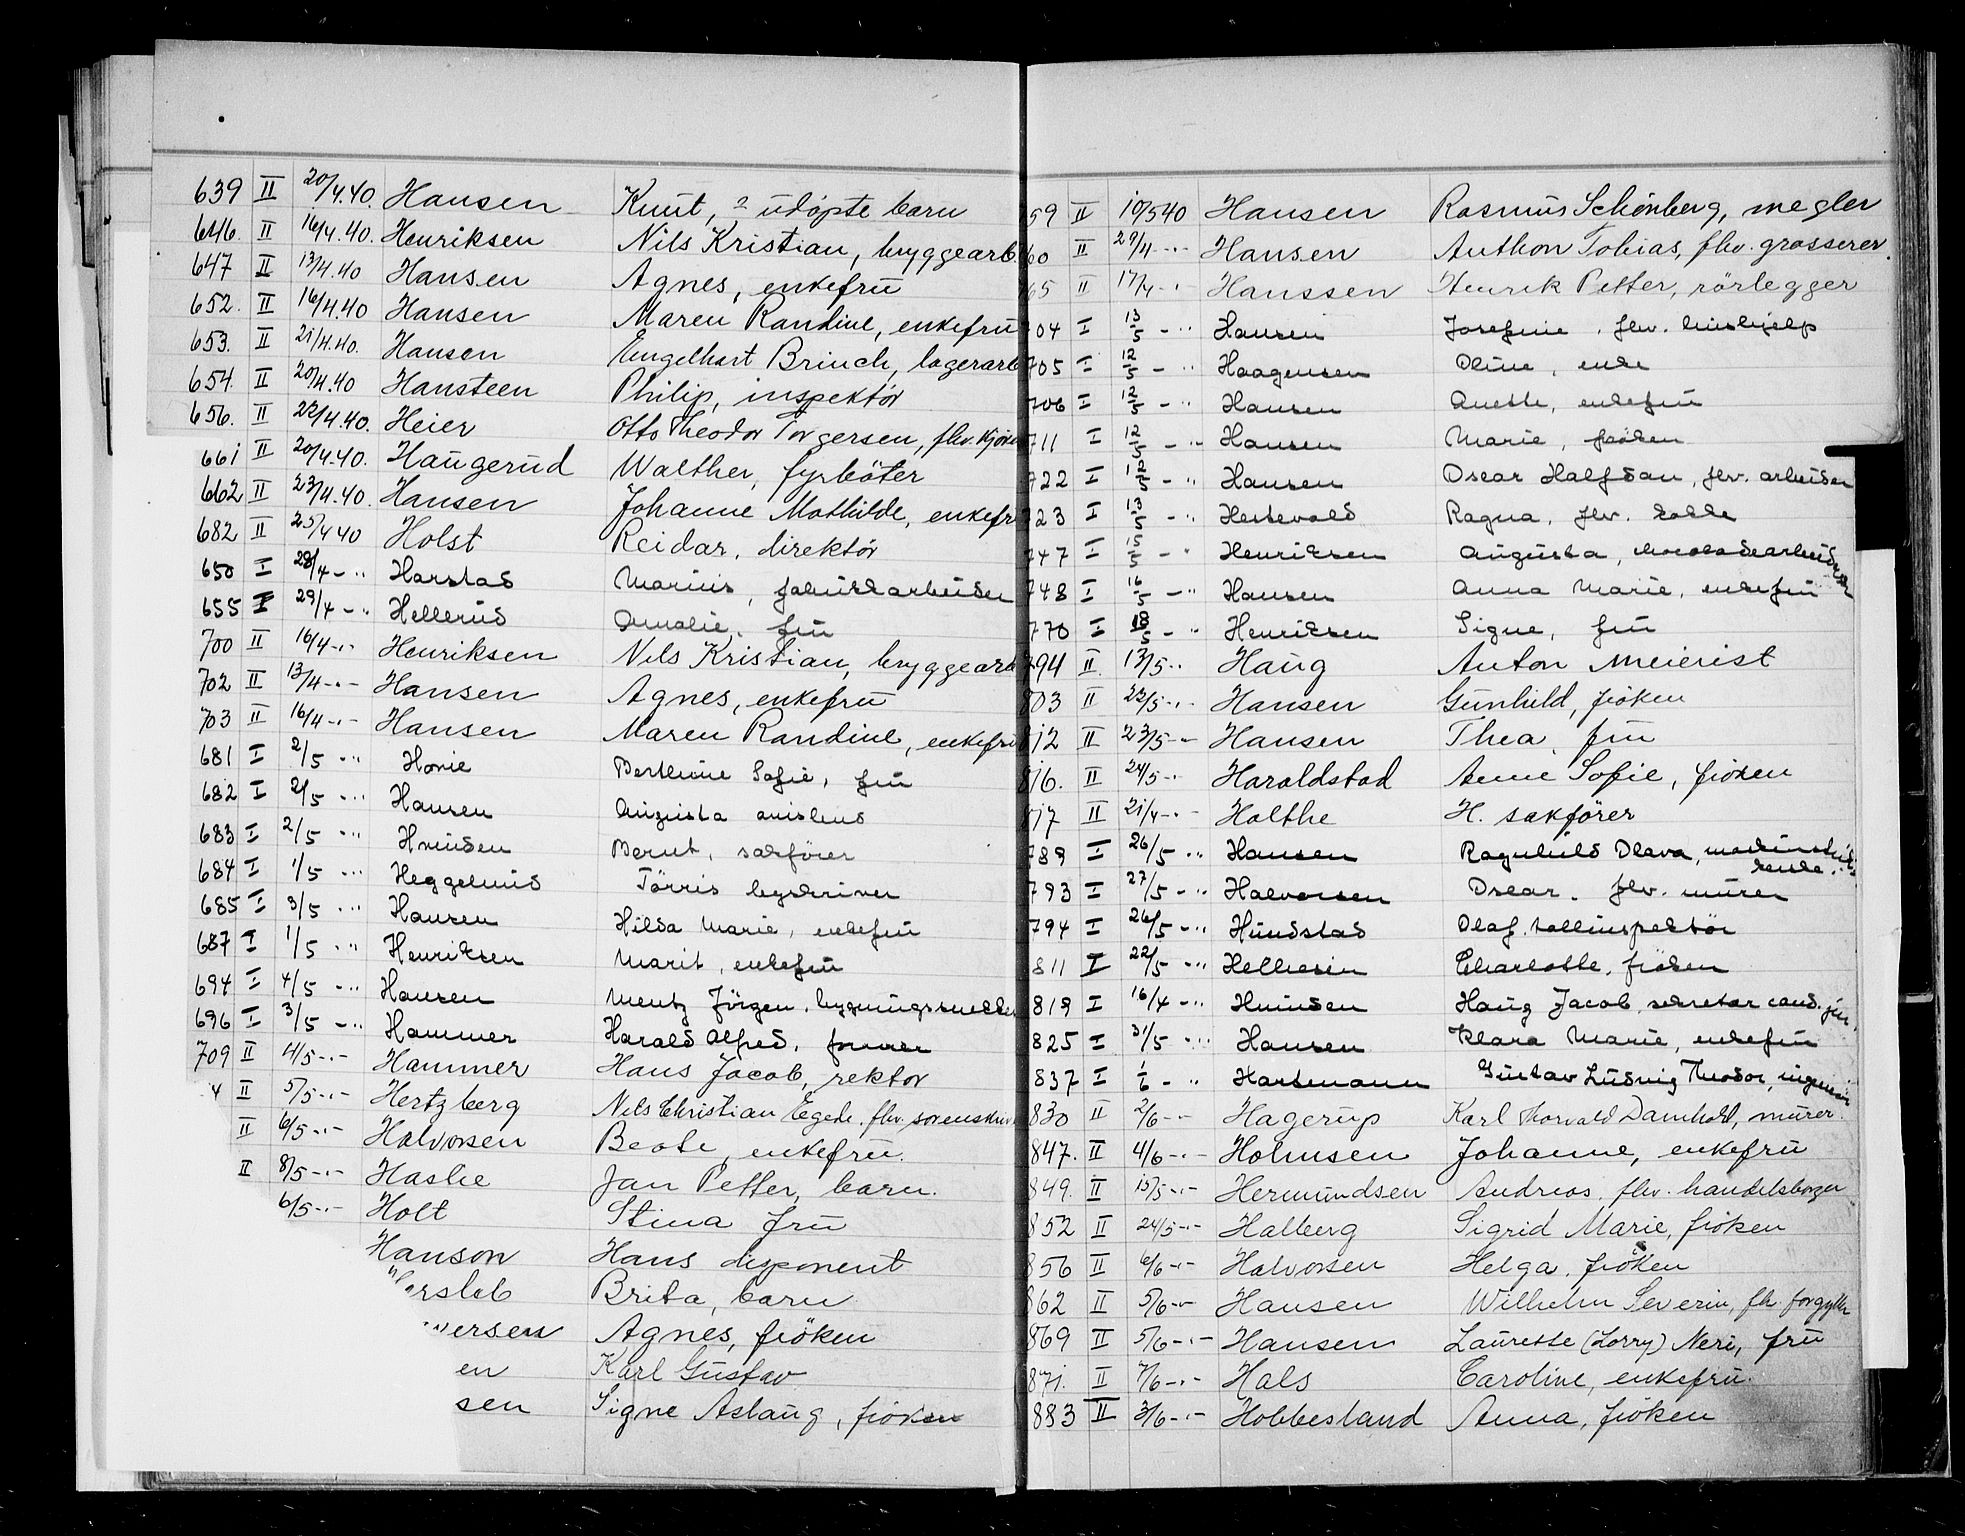 639 II 20/4.40. Hansen Knut, ? udöpte barn
646. II 16/4.40. Henriksen Nils Kristian, bryggearb
647 II 13/4.40 Hansen Agnes, enkefru
652. II 16/4.40 Hansen Maren Randine, enkefru
653. II 21/4.40. Hansen Engelhart Brinch, lagerarb
654. II 20/4.40 Hansteen Philip, inspektör
656. II 22/4.40. Heier Otto Theodor Torgersen, fhv. kjöre
661 II 20/4.40. Haugerud Walther, fyrböter
662 II 23/4.40. Hansen Johanne Mathilde, enkefr
682 II 25/4 40 Holst Reidar, direktör
650 I 28/4 - " Harstad Marius, fabrikkarbeider
655 I 29/4 - " Hellerud Amalie, fru
700 II 16/4 - " - Henriksen Nils Kristian, bryggearb
702 II 13/4 - " - Hansen Agnes, enkefru
703 II 16/4 - " - Hansen Maren Randine, enkefru
681 I 2/5 - " Hovie Berthine Sofie, fru
682 I 2/5 - " Hansen Augusta
683 I 2/5 - " Bernt, sakförer
684 I 1/5 - " Törris byskriver
685 I 3/5 - " Hansen Hilda Marie, enkefru
687 I 1/5 - " Henriksen Marit, enkefru
694 I 4/5 - " Hansen Mentz Jörgen, bygningssnekker
696 I 3/5 - " Hammer Harald Alfred, former
709 II 4/5 - " - Hammer Hans Jacob, rektor
4 II 5/5 - " - Hertzberg Nils Christian Egede. fhv. sorenskriv
II 6/5 - " - Halvorsen Beate, enkefru.
II 8/5 - " - Haslie Jan Petter, barn.
6/5 - " - Holt Stina fru
Hanson Hans disponent
ersleb Brita, barn
versen Agnes, fröken
en Karl Gustav
sen Signe Aslaug, fröken
59 II 10/5 40 Hansen Rasmus Schönberg, megler
60 II 27/4 - " - Hansen Anthon Tobias, fhv. grosserer
65 II 17/4 - " Hanssen Henrik Petter, rörlegger
704 I 13/5 - " Hansen Josefine, fhv. hushjelp
705 I 12/5 - " Haagensen Oline, enke
706 I 12/5 - " Hansen Anette, enkefru
711 I 12/5 - " Hansen Marie, fröken
722 I 12/5 - " Hansen Oscar Halfdan, fhv. arbeider
723 I 13/5 - " Hestevold Ragna, fhv. kokke
747 I 15/5 - " Henriksen Augusta, chocoladearbeiderske
748 I 16/5 - " Hansen Anna Marie, enkefru
770 I 18/5 - " Henriksen Signe, fru
794 II 13/5 - " Haug Anton Meierist
803 II 22/5 - " - Hansen Gunhild, fröken
812 II 23/5 - " Hansen Thea, fru
816. II 24/5 - " Haraldstad Anne Sofie, fröken
817 II 21/4 - " Holthe H. sakförer
789 I 26/5 " Hansen Ragnhild Olava, maskinstrikkerske
793 I 27/5 - " Halvorsen Oscar, fhv. murer
794 I 26/5 - " Hundstad Olaf, tollinspektör
811 I 22/5 - " Helliesen Charlotte, fröken
819 I 16/4 - " Haug Jacob, sekretær cand. jur.
825 I 31/5 - " Hansen Klara Marie, enkefru
837 I 1/6 - " Hartmann Gustav Ludvig Theodor, ingeniör
830 II 2/6 - " Hagerup Karl Thorvald Damhold, murer.
847. II 4/6 - " - Holmsen Johanne, enkefru
849. II 15/5 - " - Hermundsen Andreas, fhv. handelsborger
852 II 24/5 - " - Halberg Sigrid Marie, fröken
856 II 6/6 - " - Halvorsen Helga, fröken
862 II 5/6 - " Hansen Wilhelm Severin, fh. forgyller
869 II 5/6 - " - Hansen Laurette (Lorry) Neri, fru
871. II 7/6 - " - Hals Caroline, enkefru.
883 II 3/6 - " - Hobbesland Anna, fröken